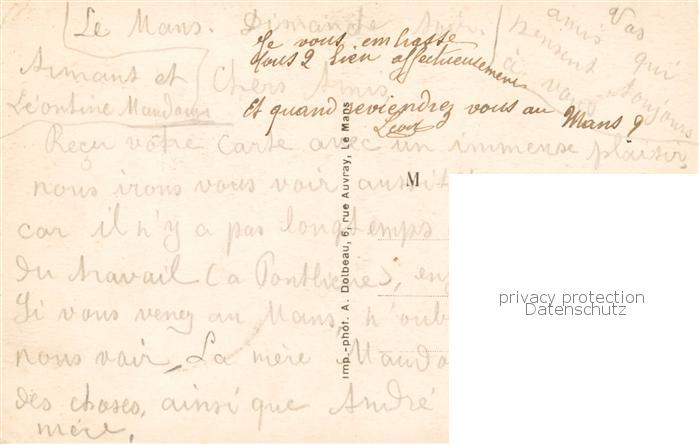 Le Mans. Dimanche
Armant et
Léontine Maudous
Chers Amis
Vos
amis qui
pensent toujours
à vous
Je vous embrasse
tous 2 bien affectueusement
Et quand reviendrez vous au Mans ?
Reçu votre carte avec un immense plaisir,
nous irons vous voir aussitôt
car il n'y a pas longtemps
du travail (a Pontlieue),
Si vous venez au Mans, n'oub
nous voir. La mère Maudo
des choses, ainsi que André
mère.
M
Imp.-phot. A. Dolbeau, 6, rue Auvray, Le Mans
privacy protection
Datenschutz